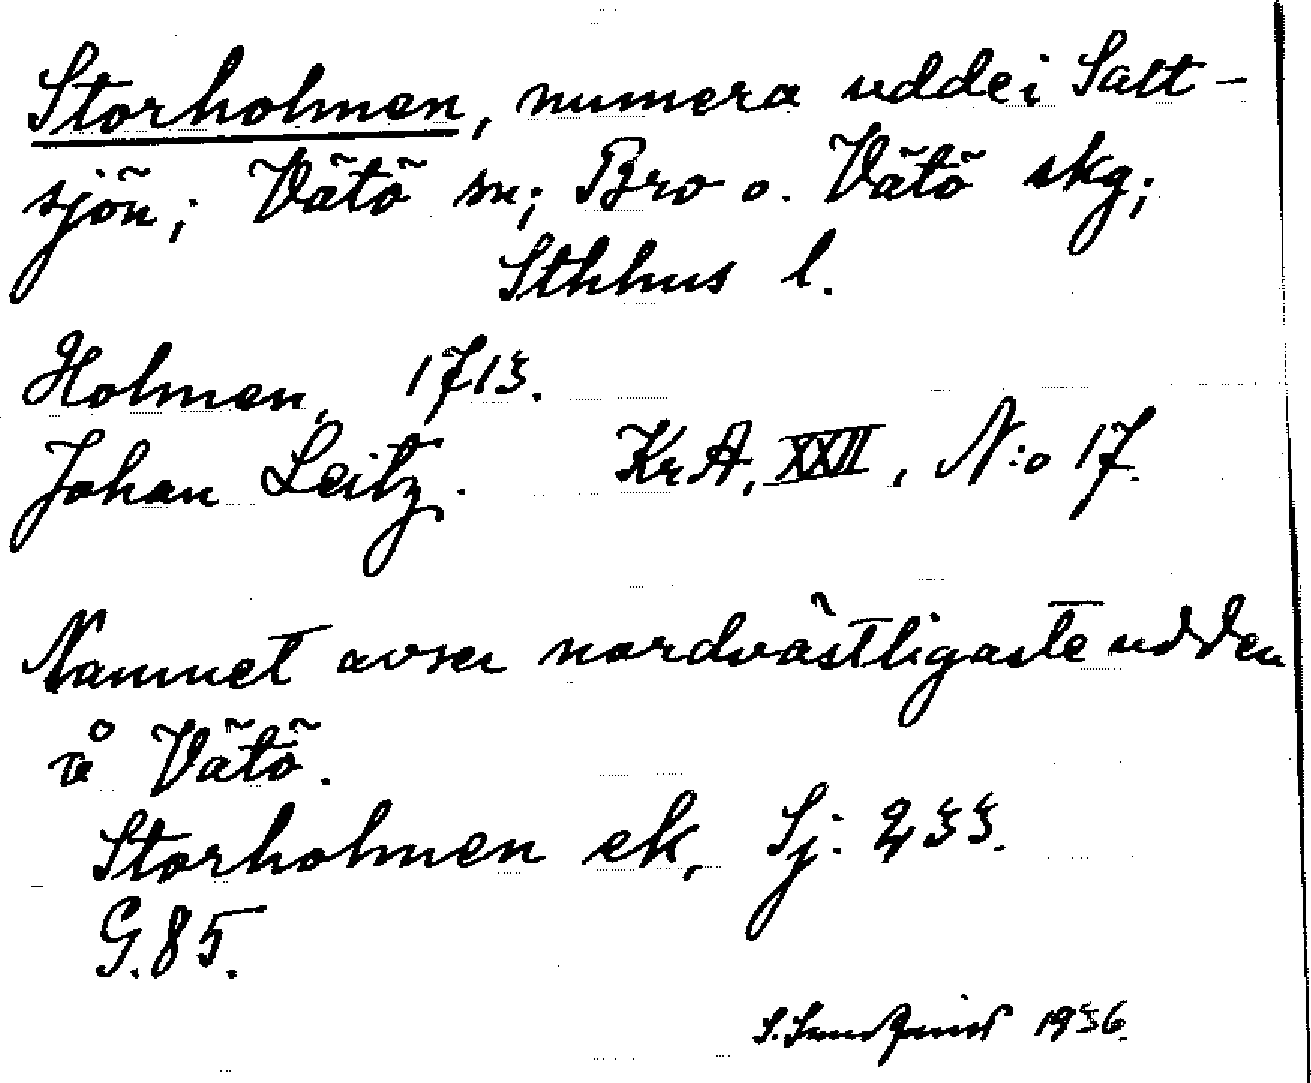 Storholmen, numera udde i Salt-
sjön; Vätö sn; Bro o. Vätö skg;
Sthlms l.
Holmen, 1713.
Johan Leitz. KrA, XXII, N:o 17.
Namnet avser nordvästligaste udden
å Vätö.
Storholmen ek, Sj: 233.
G. 85.
S. Sundquist 1936.